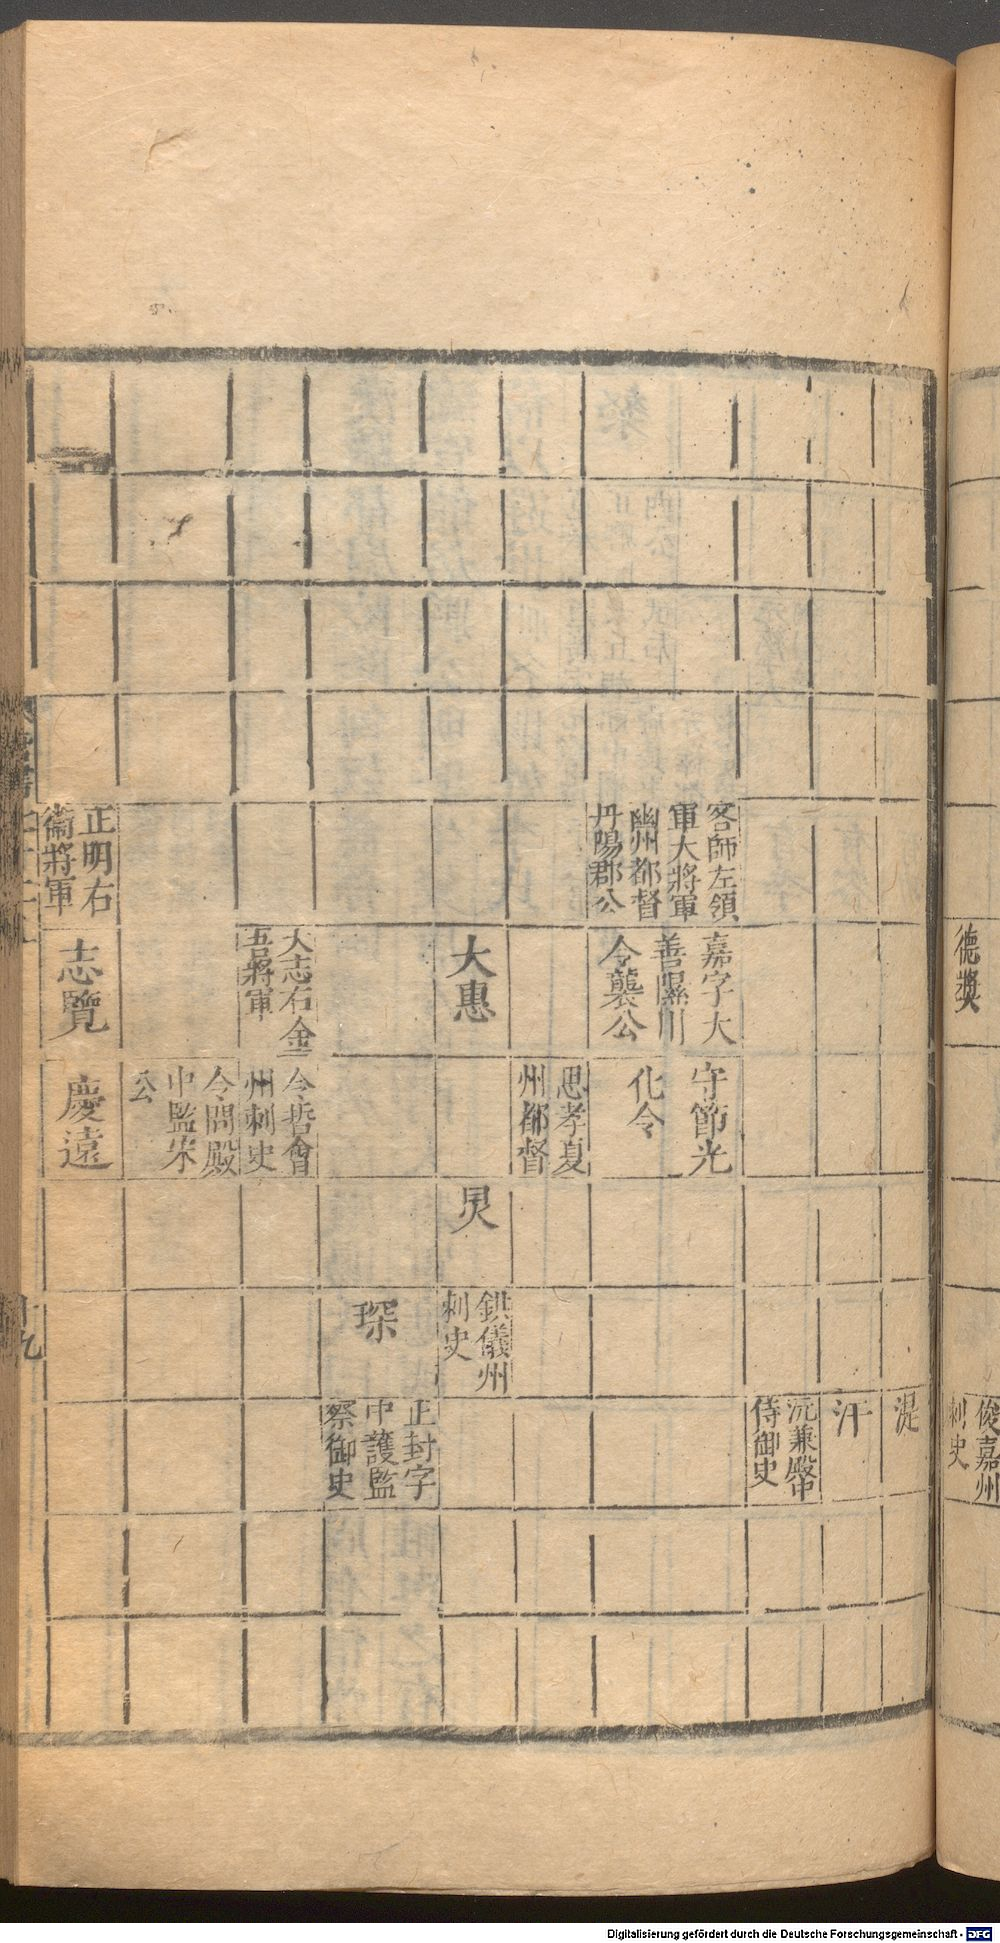 德獎
俊嘉州
刺史
湜
汗
沅兼殿中
侍御史
客師左領
軍大將軍
幽州都督
丹陽郡公
嘉字大
善㶟川
令襲公
守節光
化令
思孝夏
州都督
大惠
炅
鉷儀州
刺史
琛
正封字
中護監
察御史
大志右金
吾將軍
令哲會
州刺史
令問殿
中監宋
公
正明右
衞將軍
志覽
慶遠
Digitalisierung gefördert durch die Deutsche Forschungsgemeinschaft - DFG